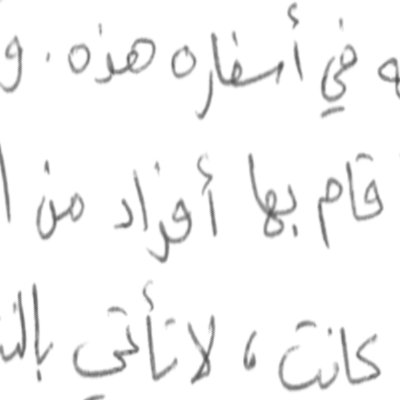 في أسفاره هذه. و
قام بها أفراد من
كانت، لا تأتي